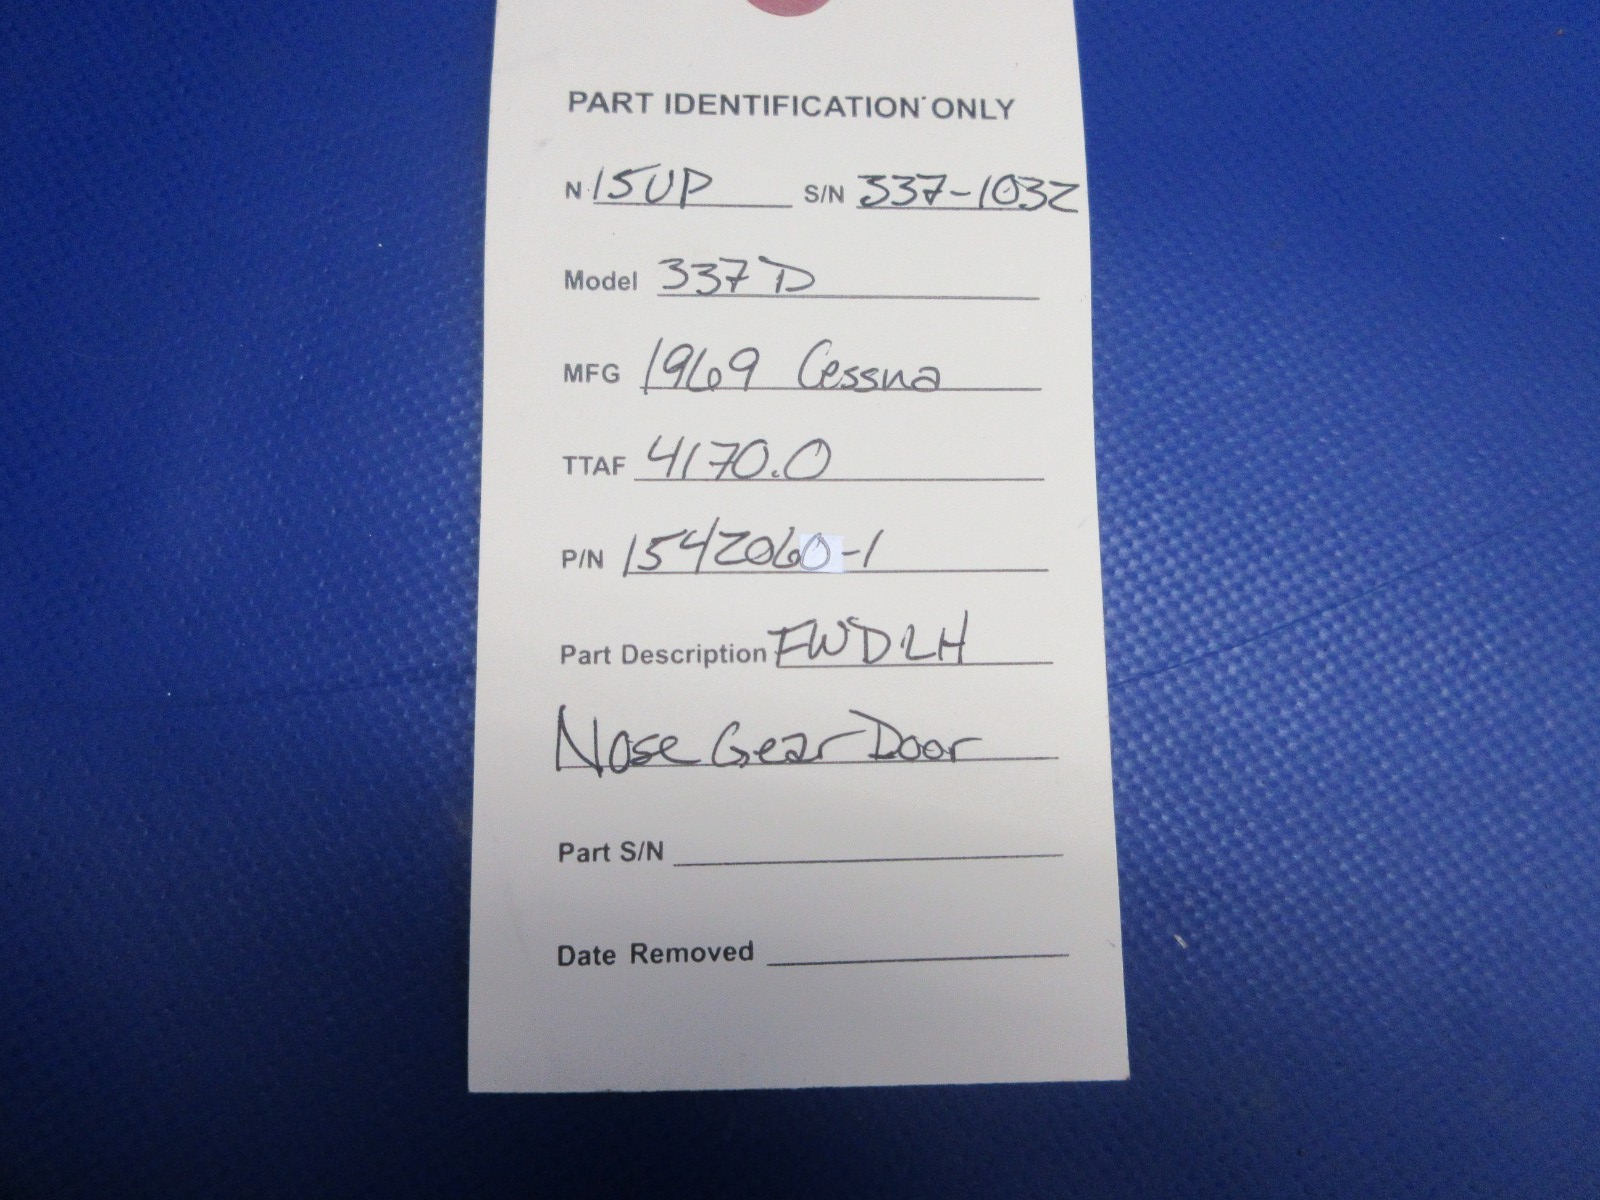 PART IDENTIFICATION ONLY
N 15UP S/N 337-1032
Model 337D
MFG 1969 Cessna
TTAF 4170.0
P/N 1542060-1
Part Description FWD LH
Nose Gear Door
Part S/N
Date Removed